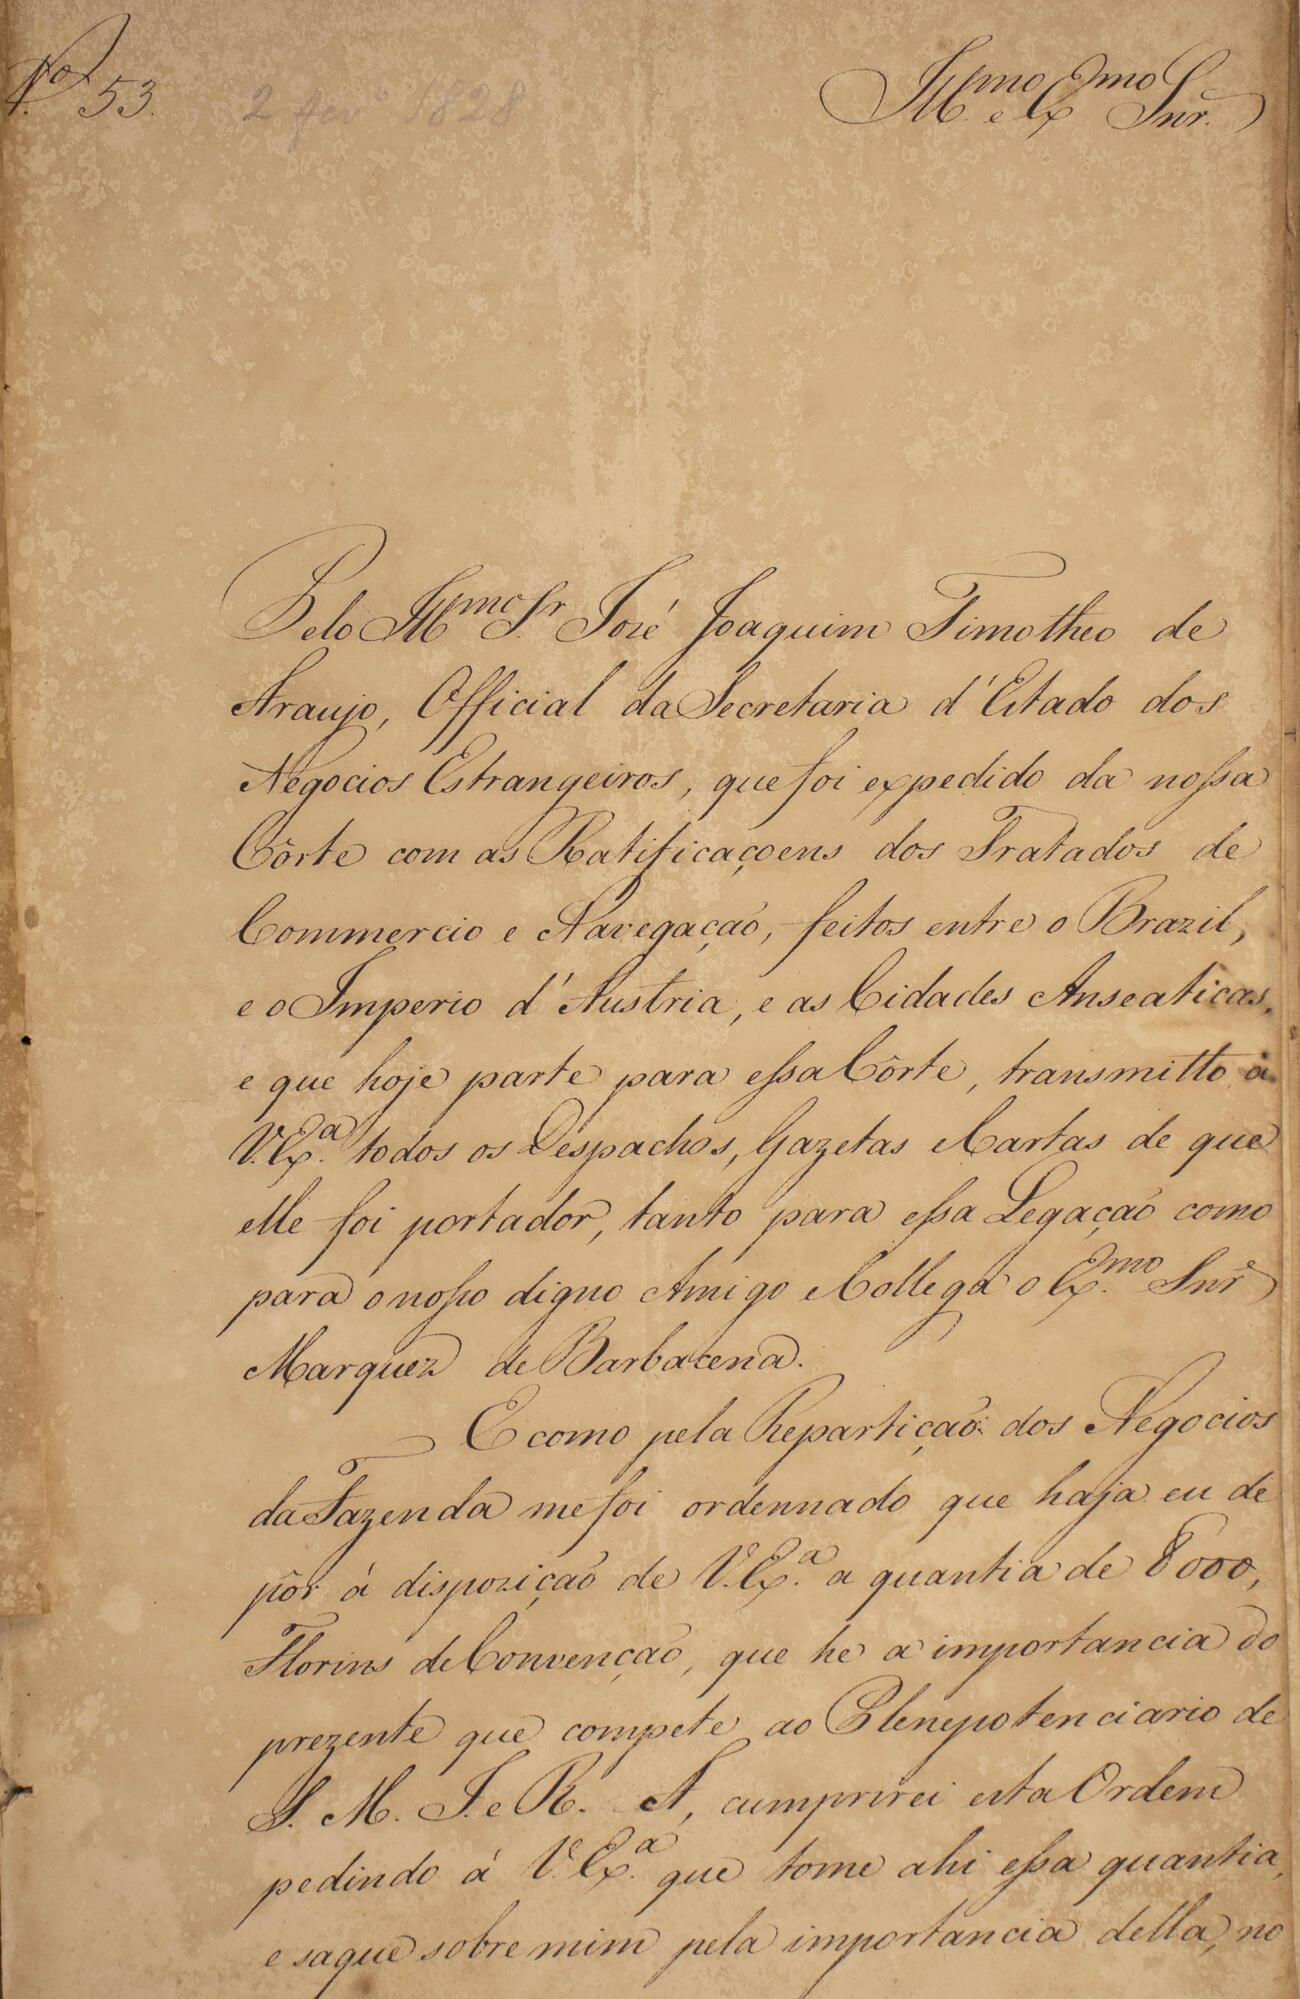 Nº 53.
2 1828
Illmo e Exmo Snr.
Pelo Illmo Sr. José Joaquim Timotheo de
Araujo, Official da Secretaria d'Estado dos
Negocios Estrangeiros, que foi expedido da nossa
Côrte com as Ratificaçoens dos Tratados de
Commercio e Navegação, feitos entre o Brazil,
e o Imperio d'Austria, e as Cidades Anseaticas,
e que hoje parte para essa Côrte, transmitto á
V. Exª. todos os Despachos, Gazetas e Cartas de que
elle foi portador, tanto para essa Legação como
para o nosso digno Amigo e Collega o Exmo. Snr
Marquez de Barbacena.
E como pela Repartição dos Negocios
da Fazenda me foi ordennado que haja eu de
pôr á disposição de V. Exª. a quantia de 8000,
Florins de Convenção, que he a importancia do
prezente que compete ao Plenepotenciario de
S. M. I. e R. A, cumprirei esta Ordem
pedindo á V. Exª. que tome ahi essa quantia,
e saque sobre mim pela importancia della, no